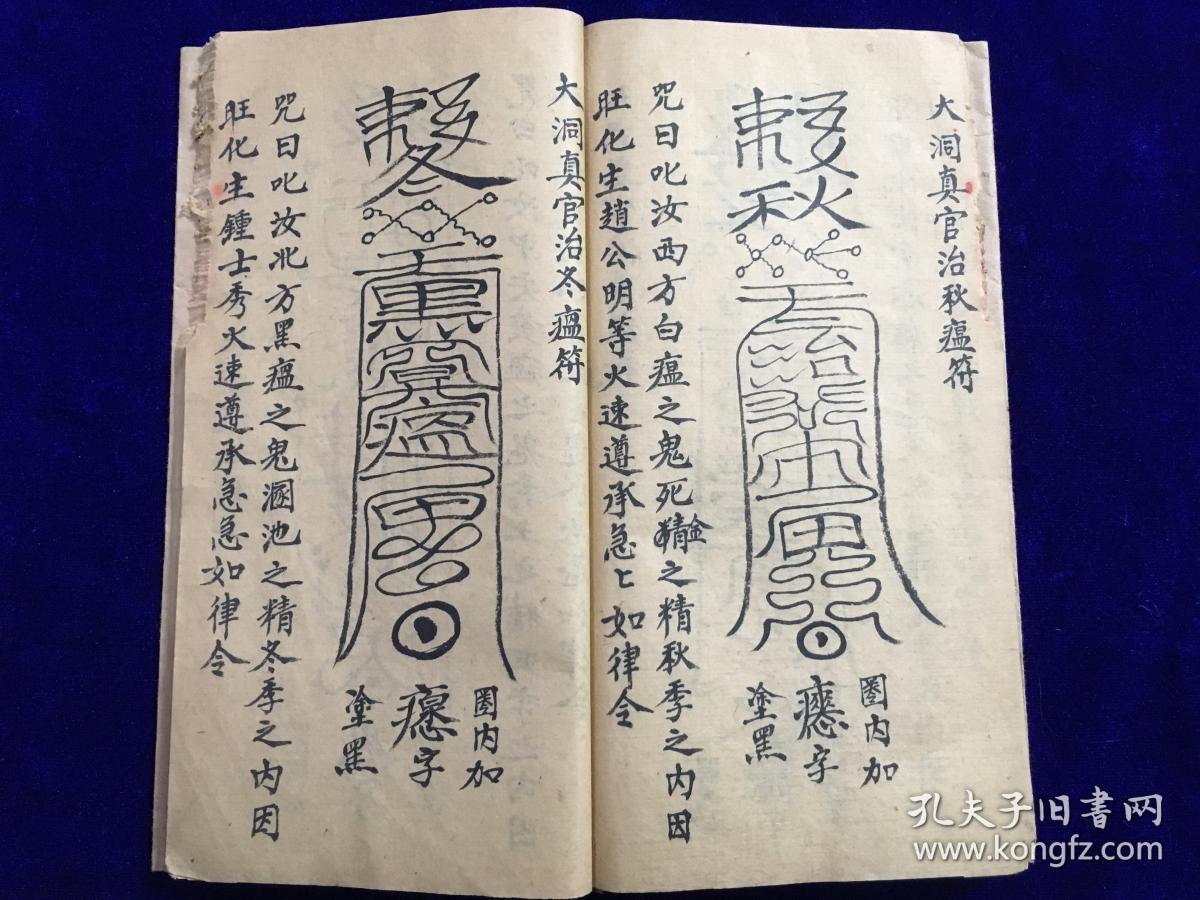 大洞真官治秋瘟符
敕
秋
圈内加
字
塗黑
咒曰叱汝西方白瘟之鬼死金精之精秋季之内因
旺化生趙公明等火速遵承急〻如律令
大洞真官治冬瘟符
敕
冬
圈内加
字
塗黑
咒曰叱汝北方黑瘟之鬼溷池之精冬季之内因
旺化生鍾士秀火速遵承急急如律令
孔夫子旧書网
www.kongfz.com